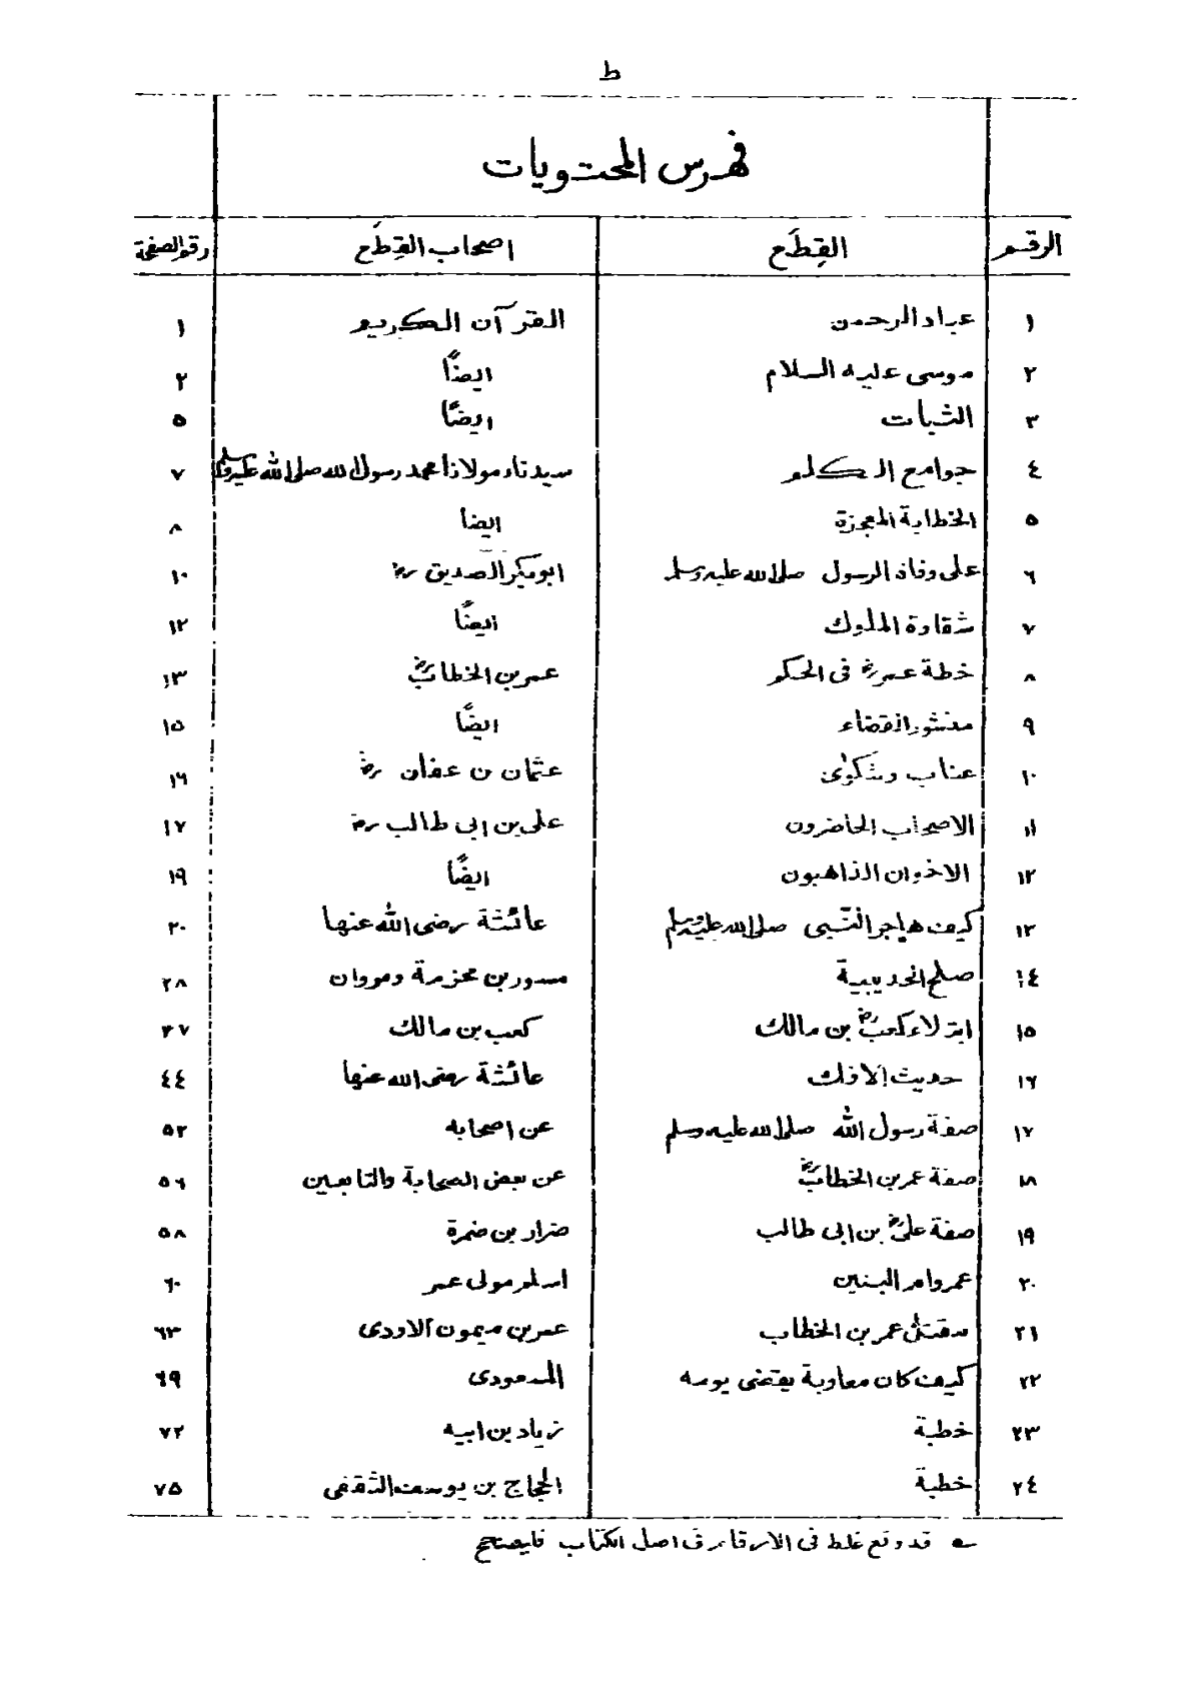 ط
فهرس المحتويات
الرقم القِطَع اصحاب القِطَع رقم الصفحة
١ عباد الرحمن القرآن الكريم ١
٢ موسى عليه السلام ايضًا ٢
٣ الثبات ايضًا ٥
٤ جوامع الكلم سيدنا ومولانا محمد رسول الله صلى الله عليه وسلم ٧
٥ الخطابة المعجزة ايضا ٨
٦ على وفاة الرسول صلى الله عليه وسلم ابوبكر الصديق رض ١٠
٧ شقاوة الملوك ايضًا ١٢
٨ خطة عمر رض فى الحكم عمر بن الخطاب رض ١٣
٩ منشور القضاء ايضًا ١٥
١٠ عتاب وشكوٰى عثمان بن عفان رض ١٦
١١ الاصحاب الحاضرون على بن ابى طالب رض ١٧
١٢ الاخوان الذاهبون ايضًا ١٩
١٣ كيف هاجر النّبى صلى الله عليه وسلم عائشة رضى الله عنها ٢٠
١٤ صلح الحديبية مسور بن مخزمة ومروان ٢٨
١٥ ابتلاء كعب رض بن مالك كعب بن مالك ٣٧
١٦ حديث الافك عائشة رضى الله عنها ٤٤
١٧ صفة رسول الله صلى الله عليه وسلم عن اصحابه ٥٢
١٨ صفة عمر بن الخطاب رض عن بعض الصحابة والتابعين ٥٦
١٩ صفة على رض بن ابى طالب ضرار بن ضمرة ٥٨
٢٠ عمر وام البنين اسلم مولى عمر ٦٠
٢١ مقتل عمر بن الخطاب عمر بن ميمون الاودى ٦٣
٢٢ كيف كان معاوية يقضى يومه المسعودى ٦٩
٢٣ خطبة زياد بن ابيه ٧٢
٢٤ خطبة الحجاج بن يوسف الثقفى ٧٥
قد وقع غلط فى الارقام فى اصل الكتاب فليصحح